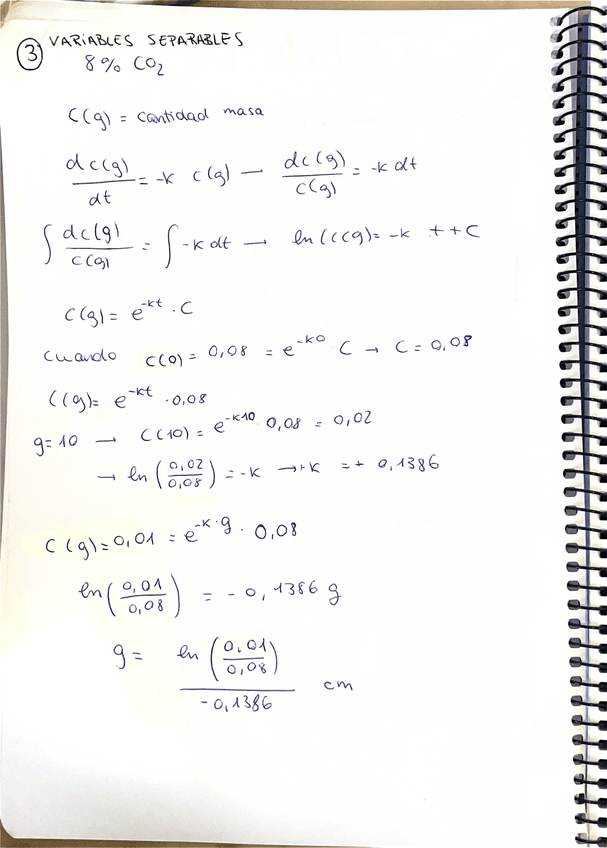 3 VARIABLES SEPARABLES
8% CO2
C(g) = cantidad masa
dc(g)/dt = -k c(g) — dc(g)/c(g) = -k dt
∫ dc(g)/c(g) = ∫ -k dt → ln(c(g) = -k t + C
C(g) = e^-kt · C
cuando C(0) = 0,08 = e^-k0 · C → C = 0,08
C(g) = e^-kt · 0,08
g = 10 → C(10) = e^-k10 · 0,08 = 0,02
→ ln(0,02/0,08) = -k → +k = + 0,1386
C(g) = 0,01 = e^-k·g · 0,08
ln(0,01/0,08) = -0,1386 g
g = ln(0,01/0,08)/-0,1386 cm